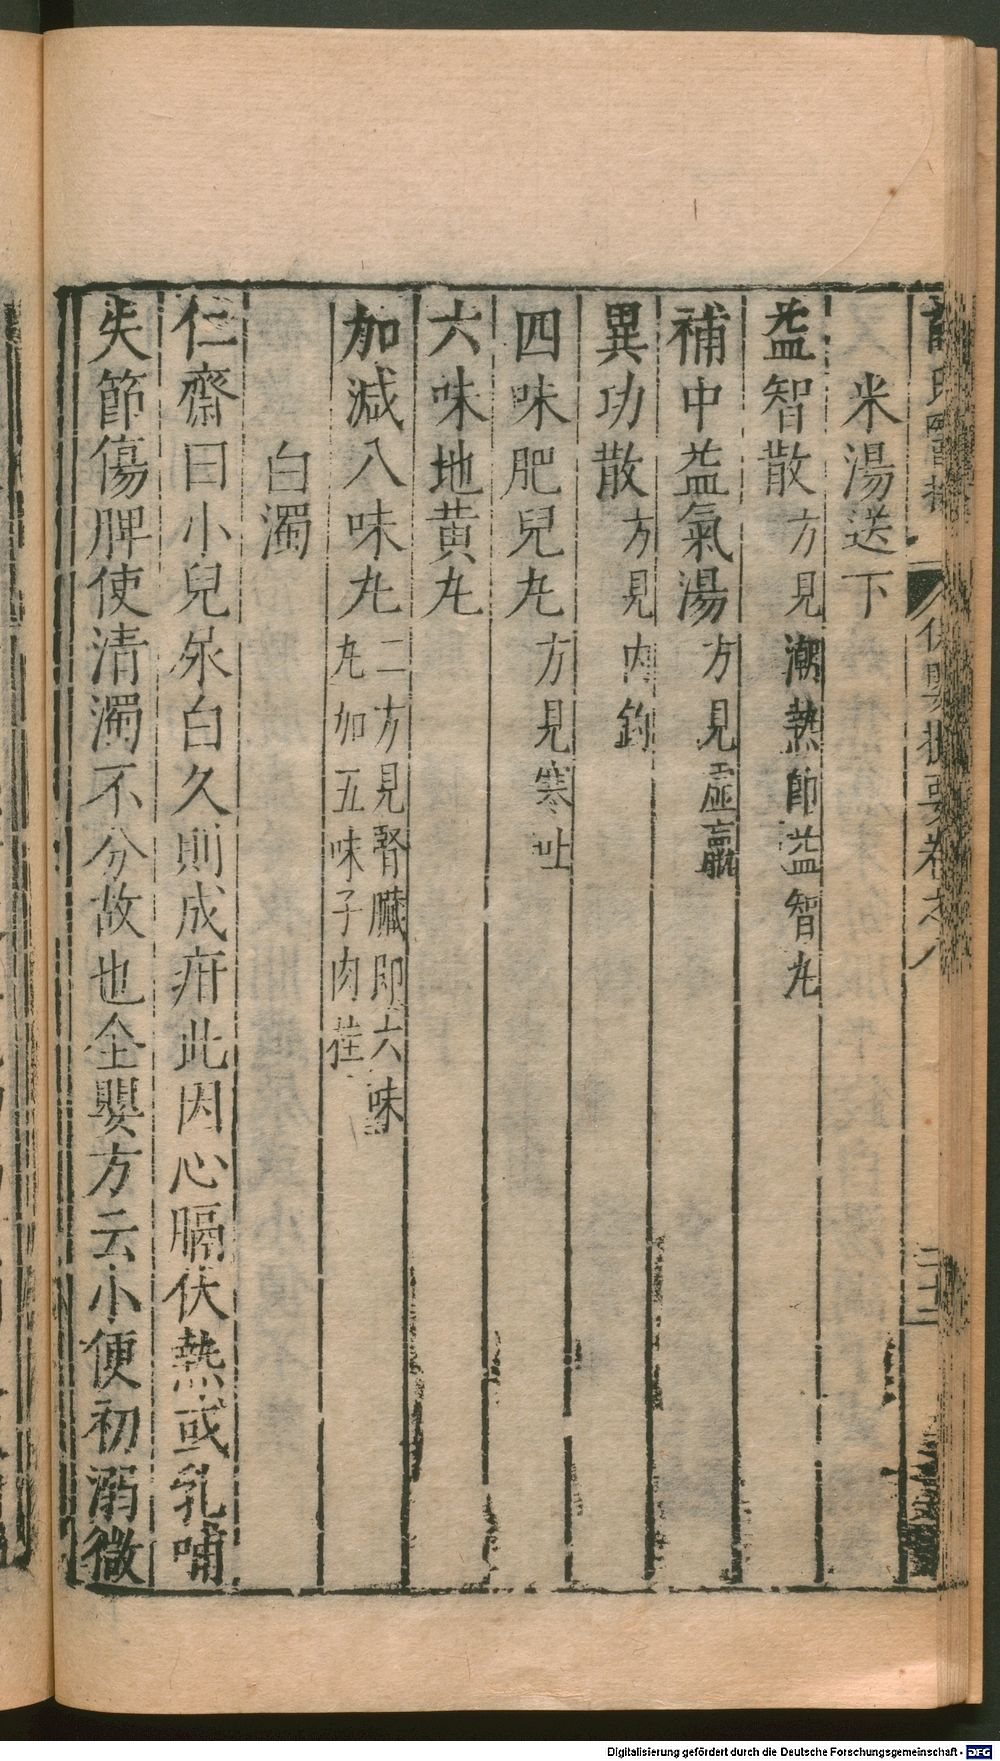 米湯送下
益智散方見潮熱即益智丸
補中益氣湯方見虛羸
異功散方見內釣
四味肥兒丸方見寒吐
六味地黃丸
加減八味丸二方見腎臟即六味
丸加五味子肉桂
白濁
仁齋曰小兒尿白久則成疳此因心膈伏熱或乳哺
失節傷脾使清濁不分故也全嬰方云小便初溺微
保嬰撮要卷之八
Digitalisierung gefördert durch die Deutsche Forschungsgemeinschaft - DFG